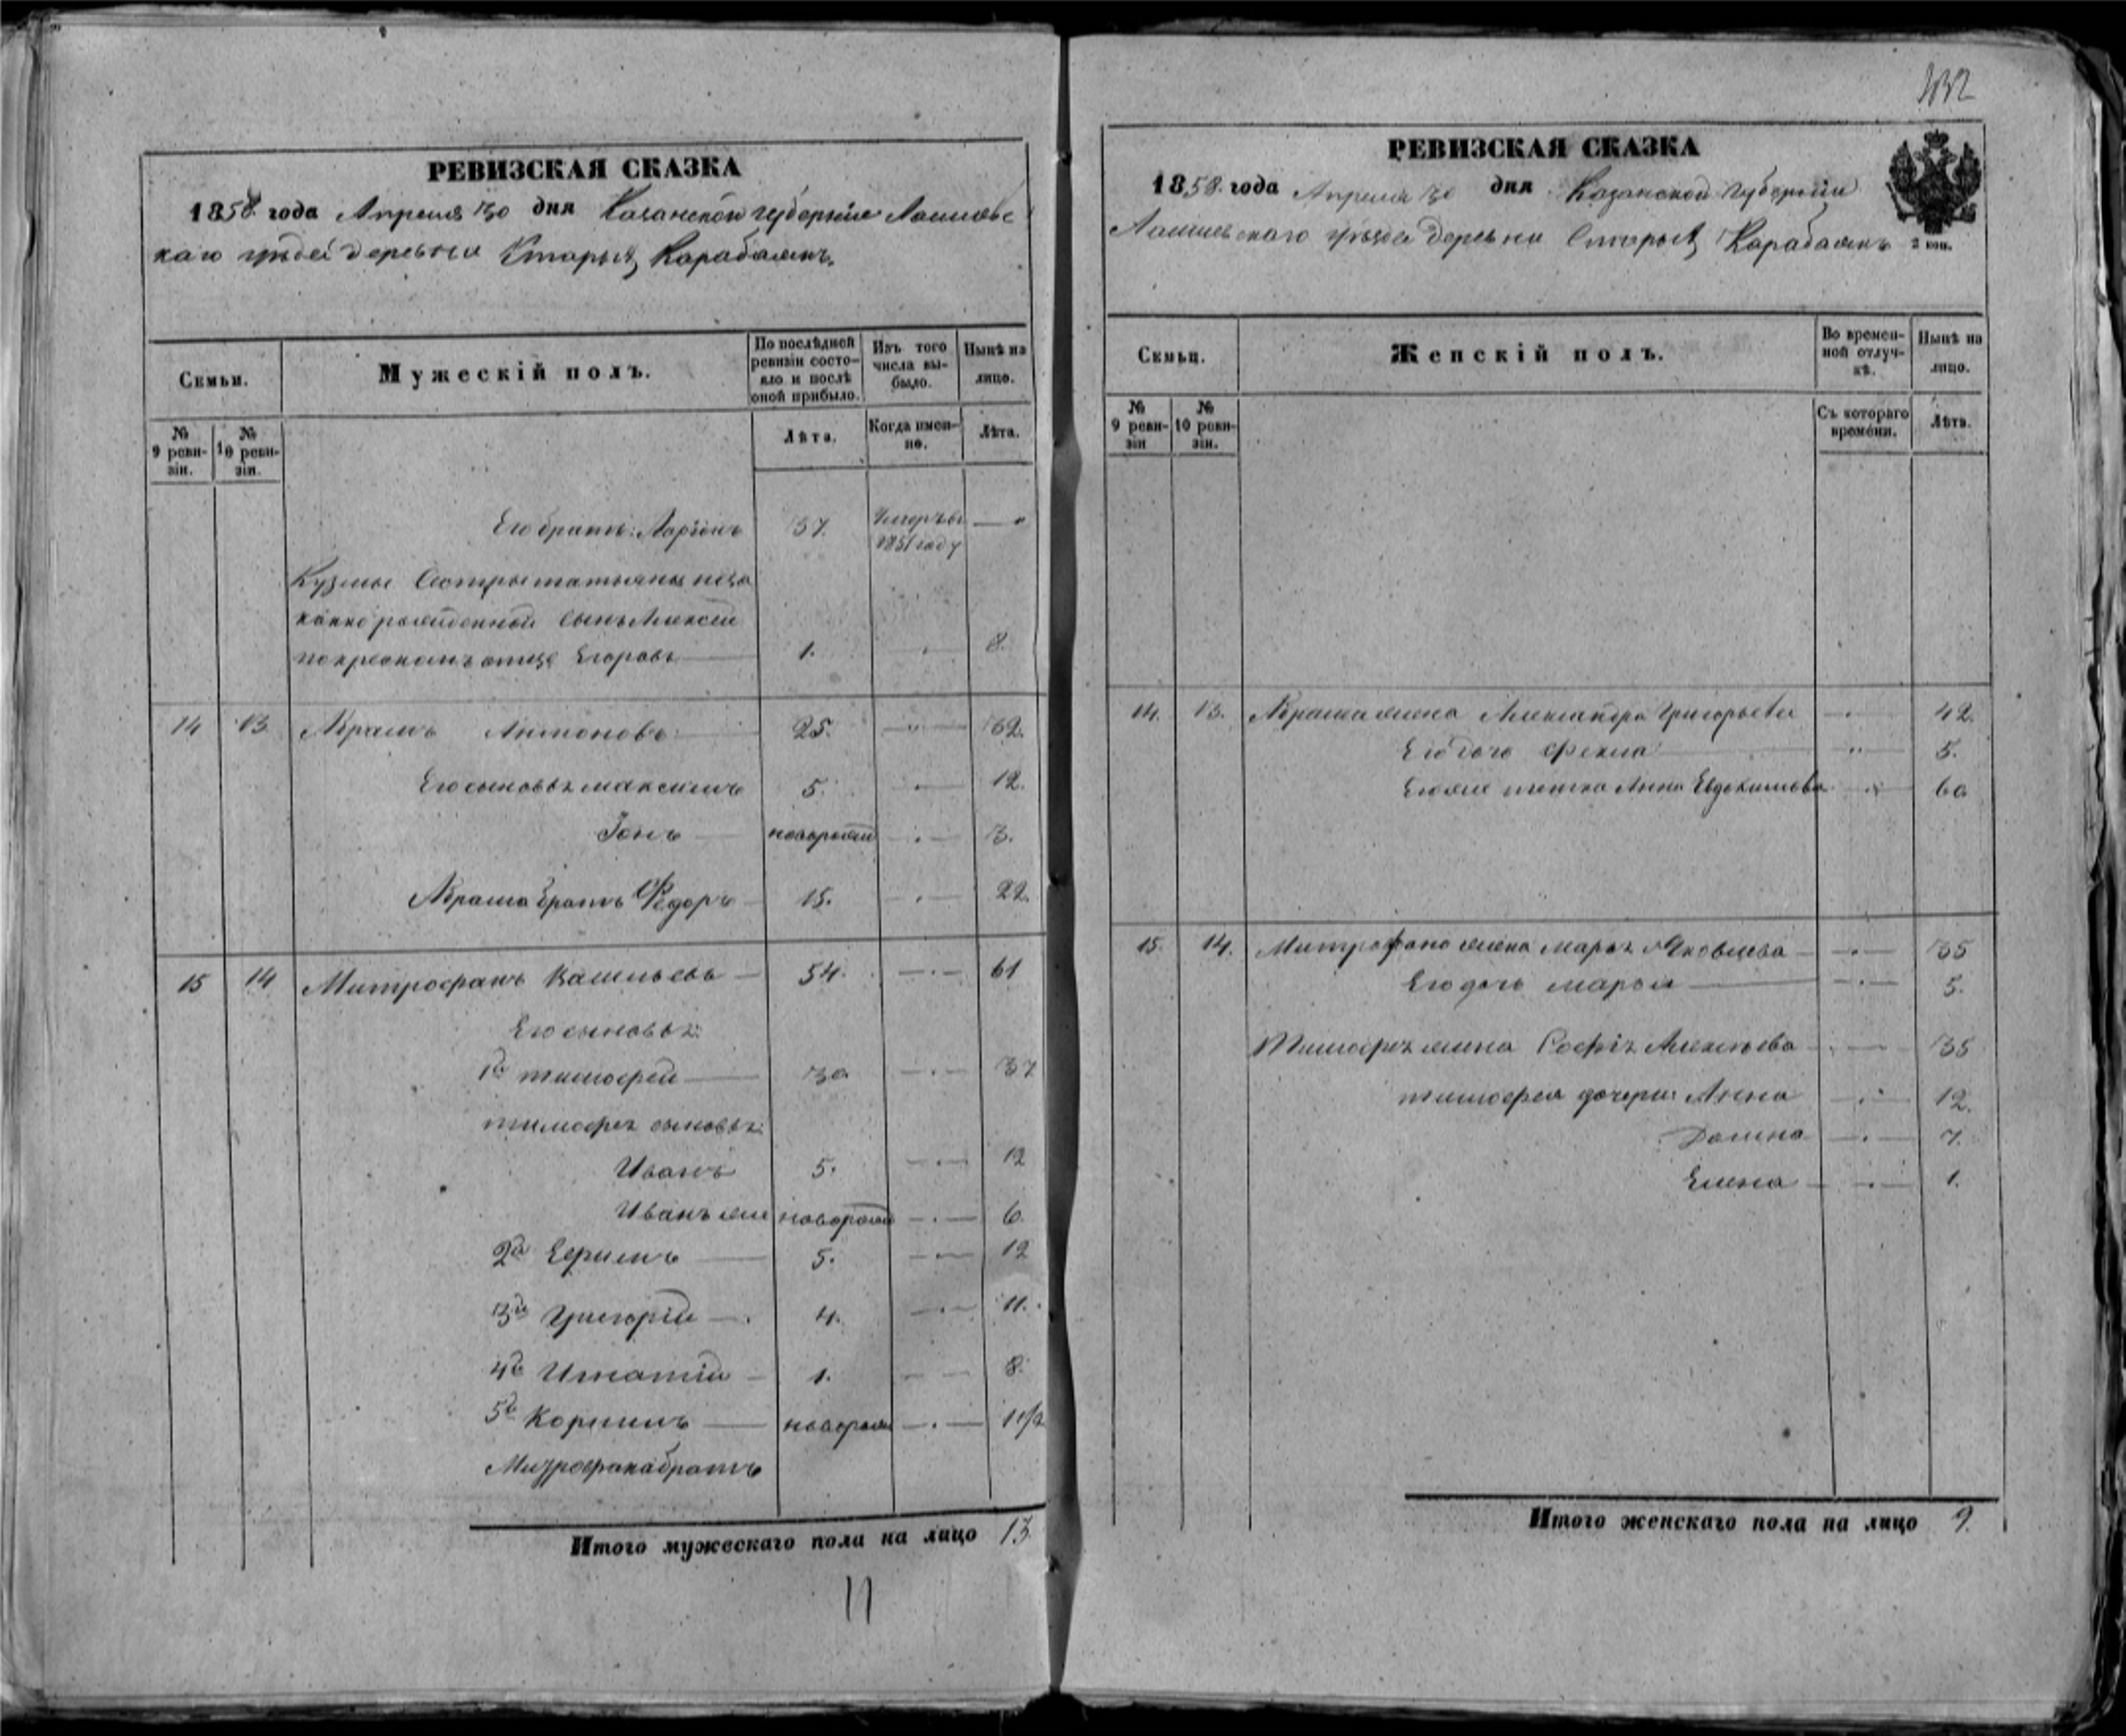 РЕВИЗСКАЯ СКАЗКА
1858 года Апреля 30 дня Казанской губернии Лаишевс
каго уезда деревни Старых Карабаянъ.
Семьи.
Мужескій полъ.
По послѣдней ревизіи состояло и послѣ оной прибыло.
Изъ того числа выбыло.
Нынѣ на лицо.
№ 9 ревизіи.
№ 10 ревизіи.
Лѣта.
Когда именно.
Лѣта.
Его братъ: Ларіонъ 37. Умеръ въ 1851 году — "
Кузмы Сестры татьяны неза
конно рожденной сынъ Алексей
по крестномъ отце Егоровъ 1. " 8.
14 13 Абрамъ Антоновъ 25. " 32.
Его сыновья максимъ 5. " 12.
Іонъ новорожд " 3.
Абрама братъ Федоръ 15. " 22.
15 14 Митрофанъ Васильевъ 54. " 61
Его сыновья:
1й тимофей 30 " 37
тимофея сыновья:
Иванъ 5. " 12
Иванъ же новорожд " 6.
2й Ефимъ 5. " 12
3й Григорій 4. " 11.
4й Игнатій 1. " 8.
5й Корнилъ новорож " 1 1/2
Митрофана братъ
Итого мужескаго пола на лицо 13
11
132
РЕВИЗСКАЯ СКАЗКА
1858 года Апреля 30 дня Казанской Губерніи
Лаишевскаго уѣзда деревни Старых Карабаянъ
2 коп.
Семьи.
Женскій полъ.
Во временной отлучкѣ.
Нынѣ на лицо.
№ 9 ревизіи
№ 10 ревизіи.
Съ котораго времени.
Лѣта.
14. 13. Абрама жена Александра Григорьева " 42.
Его дочь Фекла " 5.
Его же тетка Анна Евдокимова " 60
15. 14. Митрофана жена марья Яковлева " 35
Его дочь марья " 5.
Тимофея жена Софья Алексеева " 35
тимофея дочери: Анна " 12.
Домна " 7.
Елена " 1.
Итого женскаго пола на лицо 9.